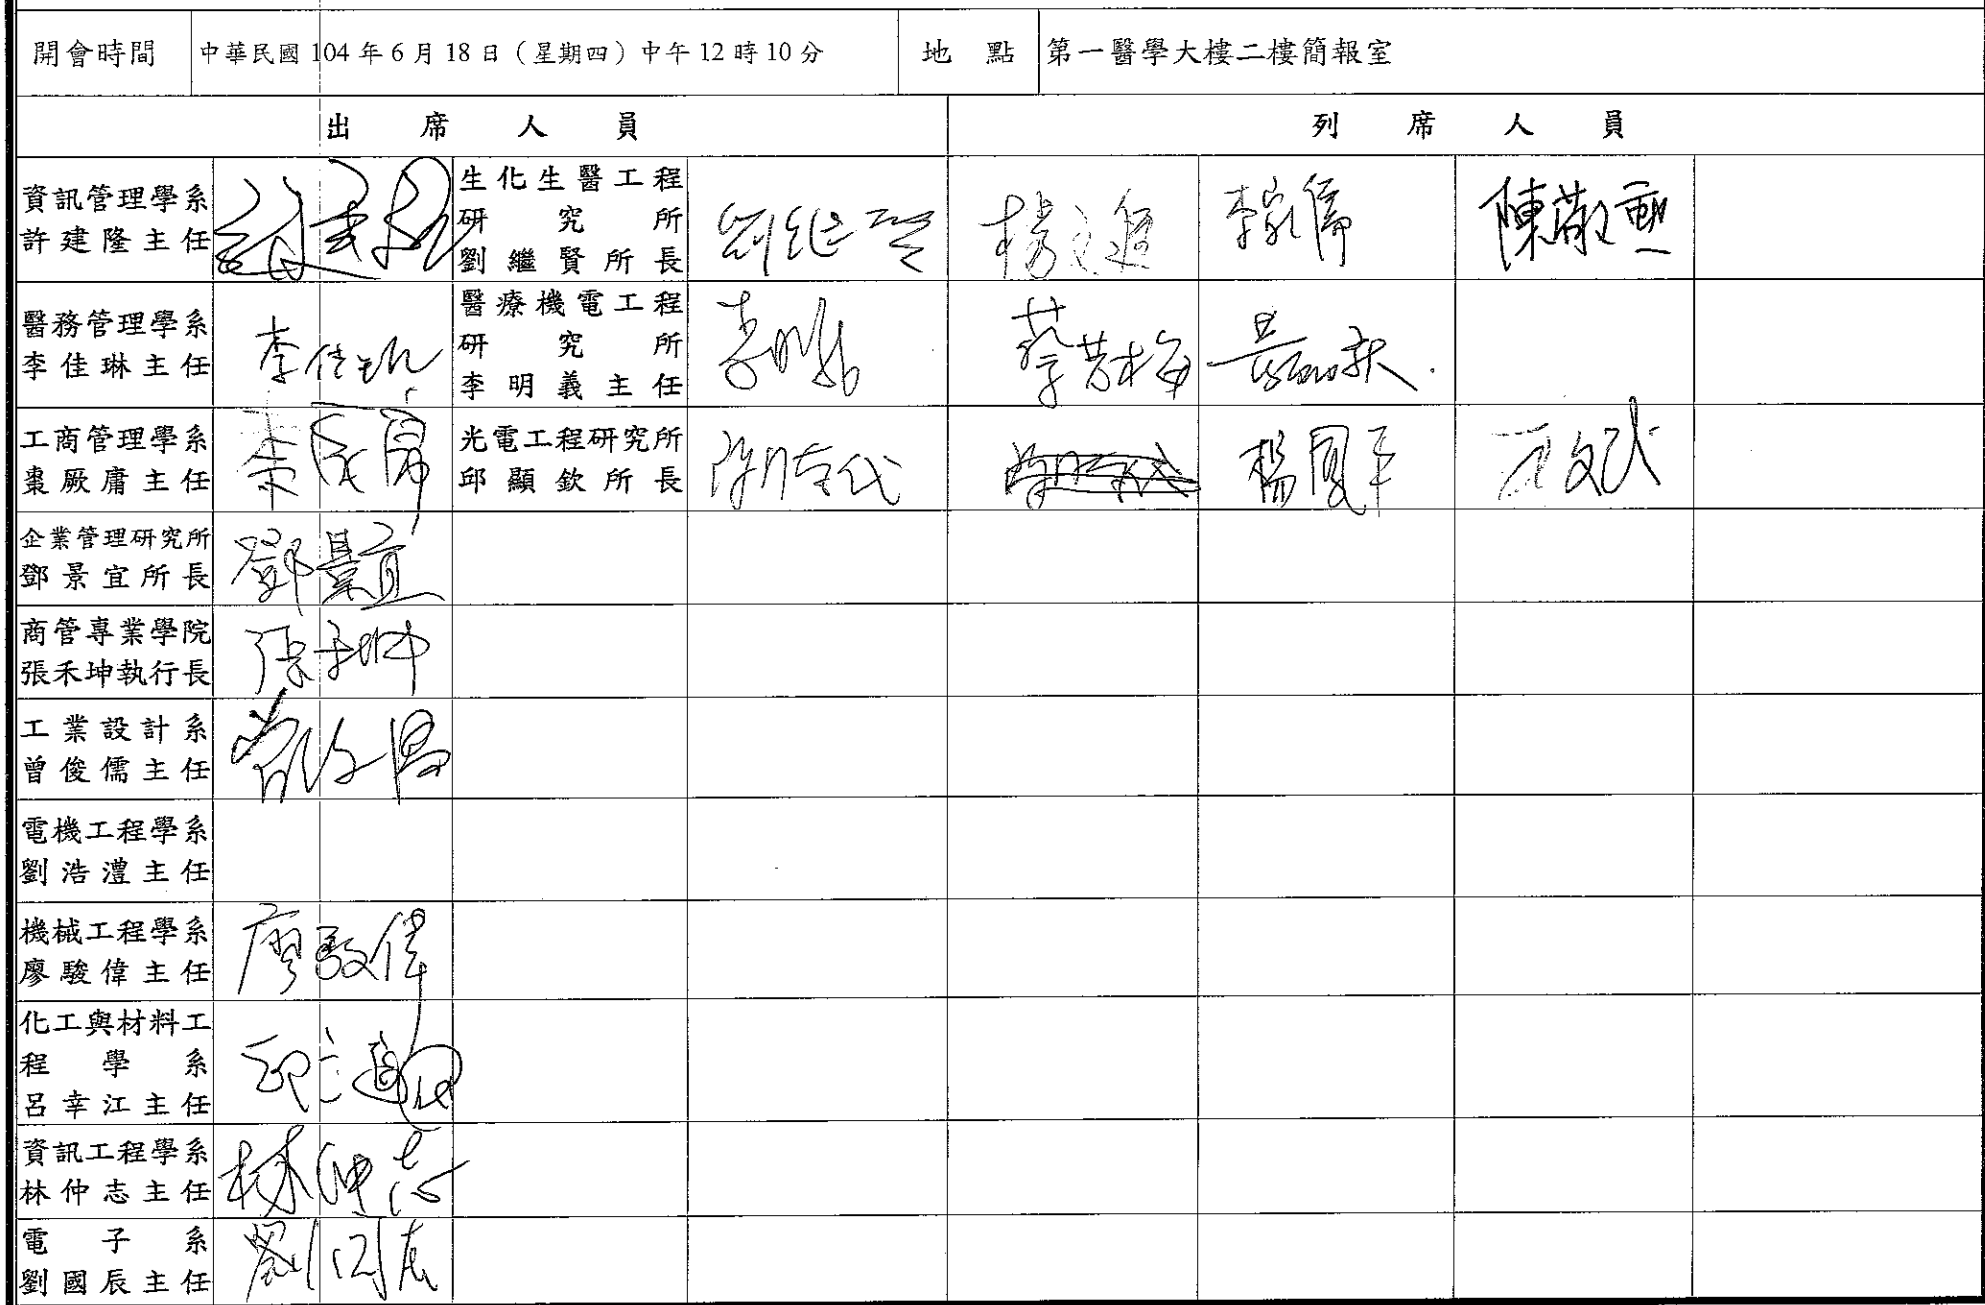 開會時間 中華民國 104 年 6 月 18 日（星期四）中午 12 時 10 分 地點 第一醫學大樓二樓簡報室
出席人員 列席人員
資訊管理學系
許建隆主任
生化生醫工程
研究所
劉繼賢所長
劉繼賢
李家偉
陳敬勳
醫務管理學系
李佳琳主任
李佳琳
醫療機電工程
研究所
李明義主任
李明義
蔡芸梅
工商管理學系
棗厥庸主任
光電工程研究所
邱顯欽所長
楊鳳平
企業管理研究所
鄧景宜所長
鄧景宜
商管專業學院
張禾坤執行長
張禾坤
工業設計系
曾俊儒主任
曾俊儒
電機工程學系
劉浩澧主任
機械工程學系
廖駿偉主任
廖駿偉
化工與材料工
程學系
呂幸江主任
資訊工程學系
林仲志主任
林仲志
電子系
劉國辰主任
劉国辰